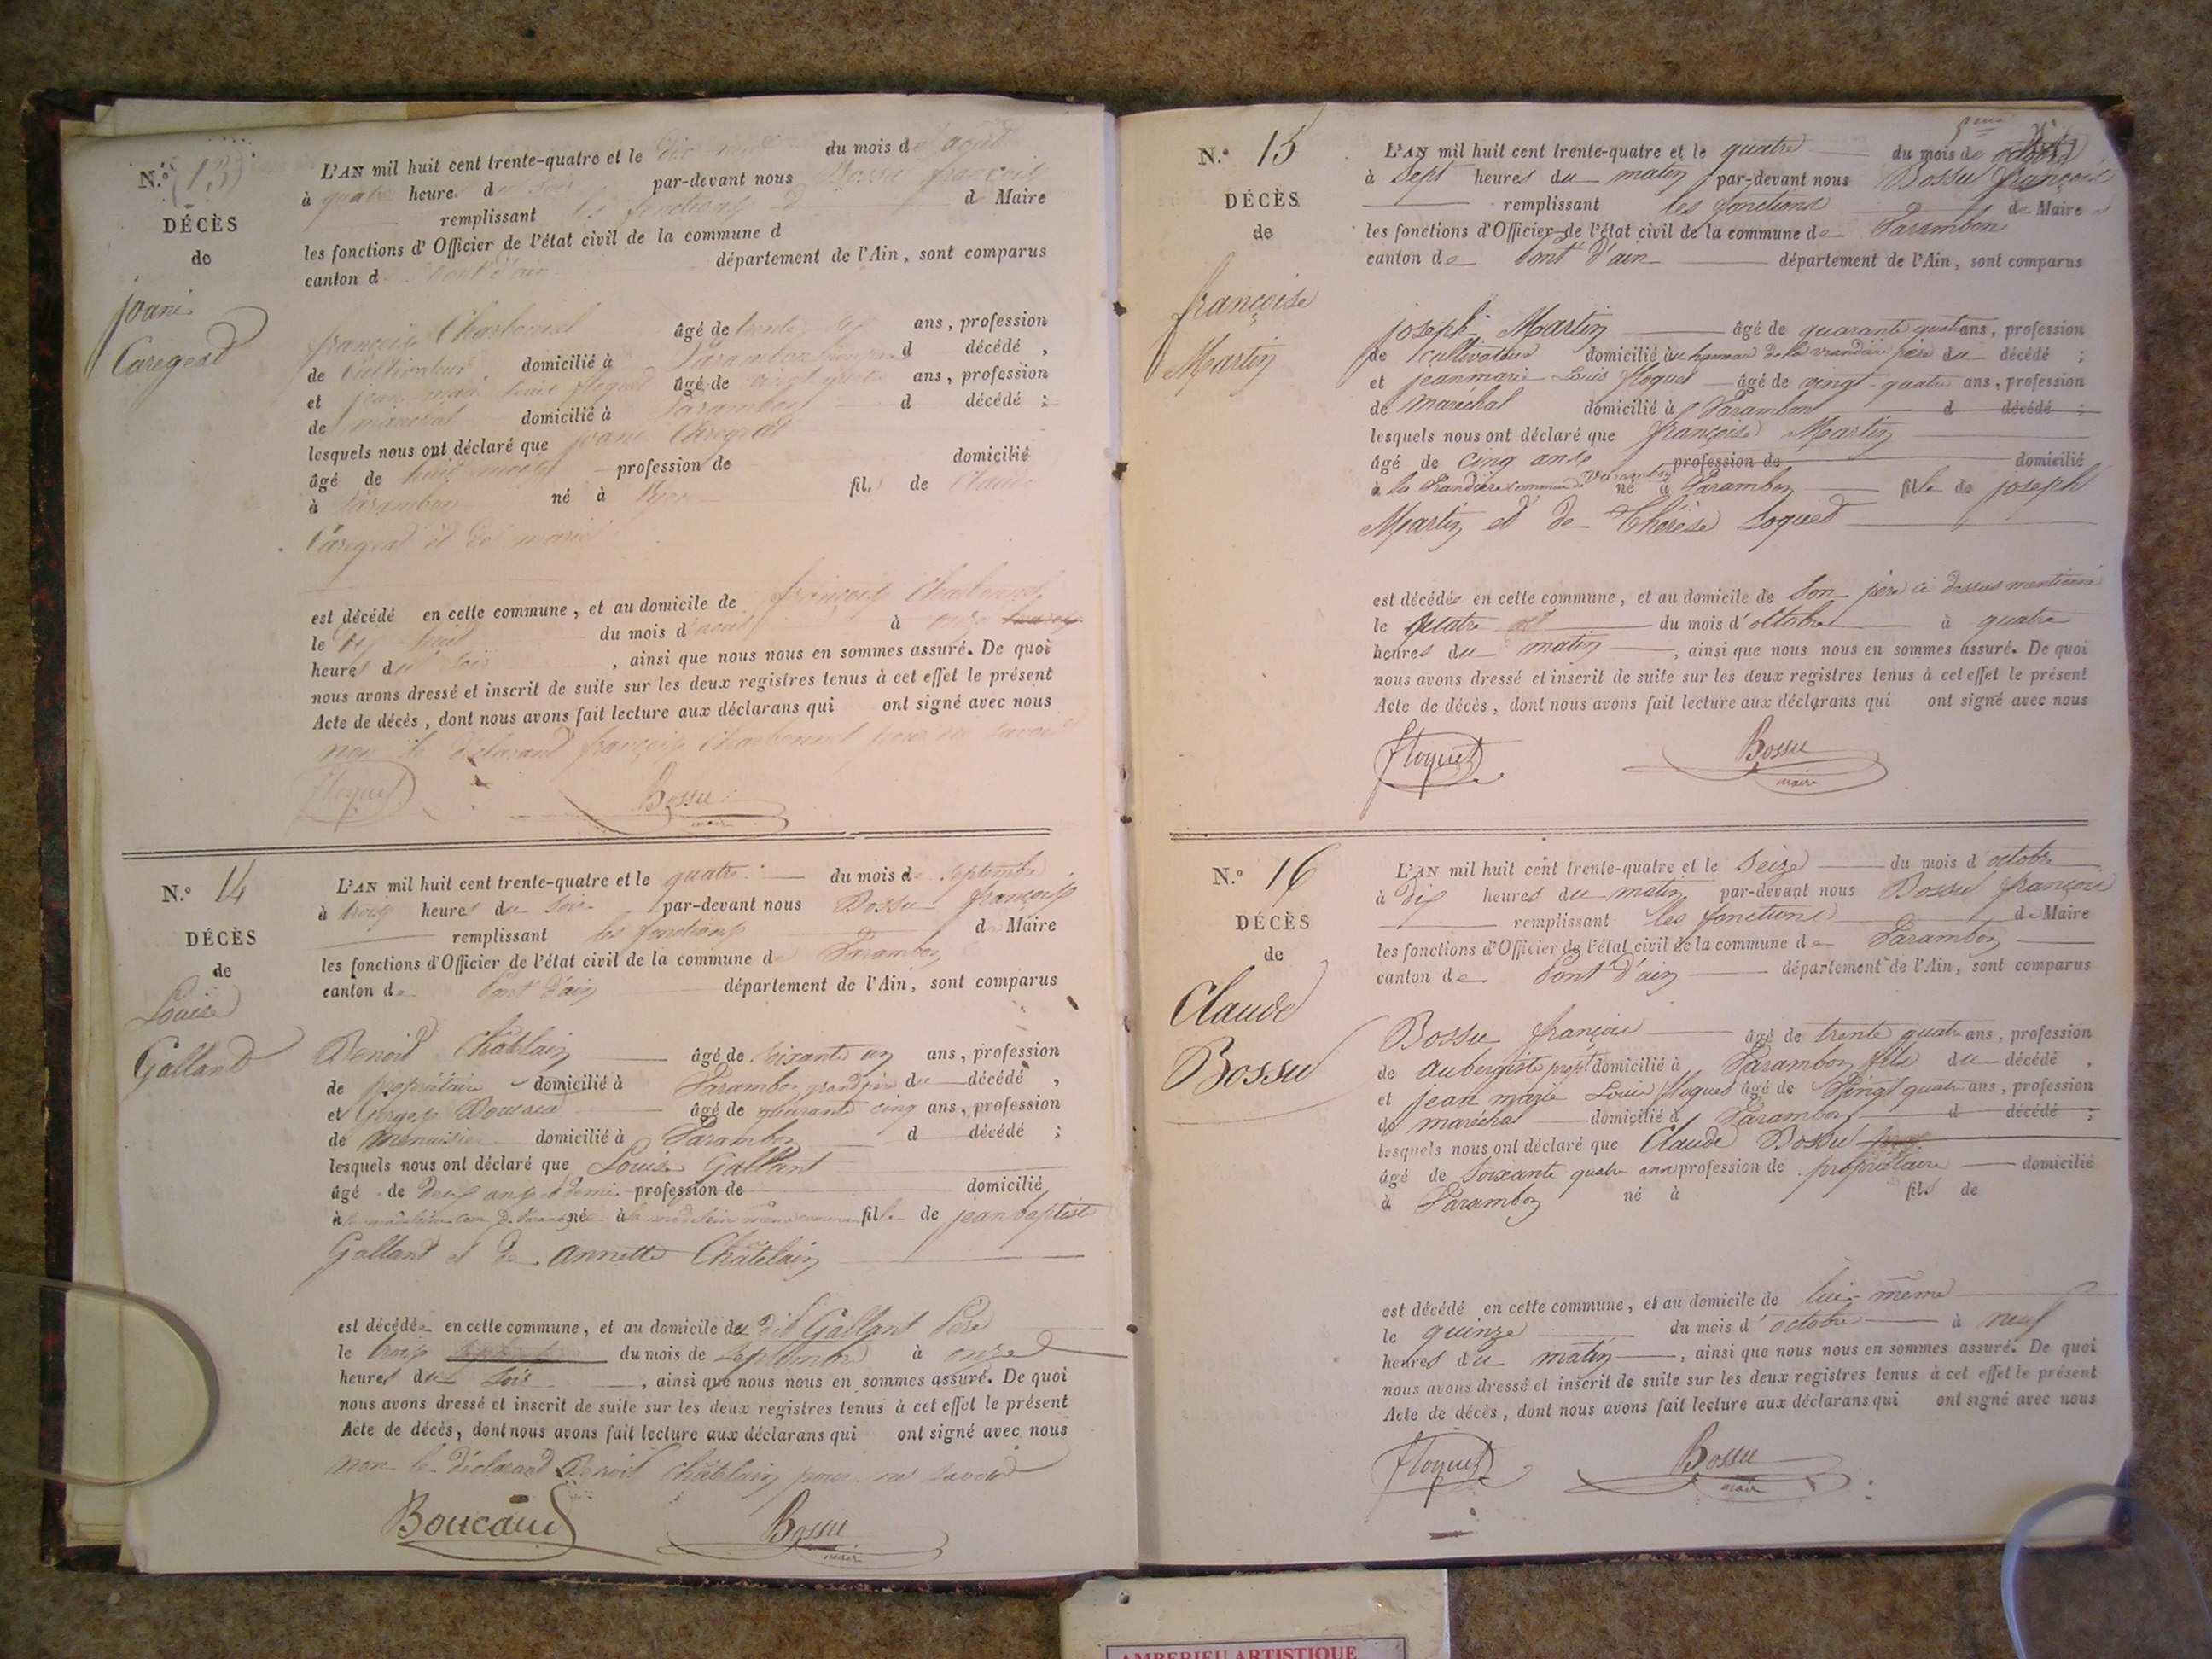 N.º 13
DÉCÈS
de
joani
Caregeat
L'AN mil huit cent trente-quatre et le du mois d'août
à quatre heures du soir par-devant nous Bossu françois
remplissant les fonctions d de Maire
les fonctions d'Officier de l'état civil de la commune d
canton d Pont d'ain département de l'Ain, sont comparus
françois Charbonnel âgé de trente ans, profession
de domicilié à Varambon d décédé,
et jean marie Louis floquet âgé de vingt quatre ans, profession
de maréchal domicilié à Varambon d décédé;
lesquels nous ont déclaré que joani Caregeat
âgé de huit mois profession de domicilié
à Varambon né à Lyon fils de Claude
Caregeat et de marie
est décédé en cette commune, et au domicile de françois Charbonnel
le dix huit du mois d'août à onze
heures du soir, ainsi que nous nous en sommes assuré. De quoi
nous avons dressé et inscrit de suite sur les deux registres tenus à cet effet le présent
Acte de décès, dont nous avons fait lecture aux déclarans qui ont signé avec nous
non le déclarant françois Charbonnel pour ne savoir
floquet Bossu
maire
N.º 14
DÉCÈS
de
Louise
Galland
L'AN mil huit cent trente-quatre et le quatre du mois de septembre
à trois heures du soir par-devant nous Bossu françois
remplissant les fonctions de Maire
les fonctions d'Officier de l'état civil de la commune de Varambon
canton de Pont d'ain département de l'Ain, sont comparus
Benoit Châtelain âgé de soixante un ans, profession
de propriétaire domicilié à Varambon grand père du décédé,
et Boucaud âgé de quarante cinq ans, profession
de menuisier domicilié à Varambon d décédé;
lesquels nous ont déclaré que Louise Galland
âgé de deux ans et demi profession de domicilié
à née à fille de jean baptiste
Galland et de annette Châtelain
est décédée en cette commune, et au domicile du dit Galland Père
le trois du mois de septembre à onze
heures du soir, ainsi que nous nous en sommes assuré. De quoi
nous avons dressé et inscrit de suite sur les deux registres tenus à cet effet le présent
Acte de décès, dont nous avons fait lecture aux déclarans qui ont signé avec nous
non le déclarant Benoit Châtelain pour ne savoir
Boucaud Bossu
maire
N.º 15
DÉCÈS
de
françoise
Martin
L'AN mil huit cent trente-quatre et le quatre du mois de octobre
à Sept heures du matin par-devant nous Bossu françois
remplissant les fonctions de Maire
les fonctions d'Officier de l'état civil de la commune de Varambon
canton de Pont d'ain département de l'Ain, sont comparus
joseph Martin âgé de quarante quatre ans, profession
de cultivateur domicilié au hameau de la père du décédé;
et jean marie Louis floquet âgé de vingt-quatre ans, profession
de maréchal domicilié à Varambon d décédé;
lesquels nous ont déclaré que françoise Martin
âgé de cinq ans profession de domicilié
à la commune de Varambon né à Varambon fille de joseph
Martin et de Thérèse Loquet
est décédée en cette commune, et au domicile de Son père ci dessus mentionné
le quatre du mois d'octobre à quatre
heures du matin, ainsi que nous nous en sommes assuré. De quoi
nous avons dressé et inscrit de suite sur les deux registres tenus à cet effet le présent
Acte de décès, dont nous avons fait lecture aux déclarans qui ont signé avec nous
floquet Bossu
maire
N.º 16
DÉCÈS
de
Claude
Bossu
L'AN mil huit cent trente-quatre et le Seize du mois d'octobre
à dix heures du matin par-devant nous Bossu françois
remplissant les fonctions de Maire
les fonctions d'Officier de l'état civil de la commune de Varambon
canton de Pont d'ain département de l'Ain, sont comparus
Bossu françois âgé de trente quatre ans, profession
de aubergiste domicilié à Varambon fils du décédé,
et jean marie Louis floquet âgé de vingt quatre ans, profession
de maréchal domicilié à Varambon d décédé;
lesquels nous ont déclaré que Claude Bossu
âgé de Soixante quatre ans profession de propriétaire domicilié
à Varambon né à fils de
est décédé en cette commune, et au domicile de lui-même
le quinze du mois d'octobre à neuf
heures du matin, ainsi que nous nous en sommes assuré. De quoi
nous avons dressé et inscrit de suite sur les deux registres tenus à cet effet le présent
Acte de décès, dont nous avons fait lecture aux déclarans qui ont signé avec nous
floquet Bossu
maire
AMBERIEU ARTISTIQUE